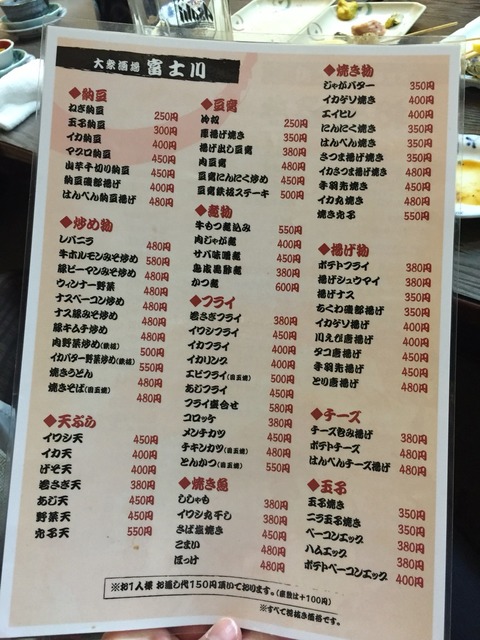 大衆酒場 富士川
◆納豆
ねぎ納豆 250円
玉子納豆 300円
イカ納豆 400円
マグロ納豆 450円
山芋千切り納豆 450円
納豆磯部揚げ 400円
はんぺん納豆揚げ 480円
◆炒め物
レバニラ 480円
牛ホルモンみそ炒め 580円
豚ピーヤンみそ炒め 480円
ウィンナー野菜 480円
ナスベーコン炒め 480円
ナス豚みそ炒め 480円
豚キムチ炒め 480円
肉野菜炒め(鉄板) 500円
イカバター野菜炒め(鉄板) 550円
焼きうどん 480円
焼きそば(目玉焼) 480円
◆天ぷら
イワシ天 450円
イカ天 400円
げそ天 400円
岩さぎ天 380円
あじ天 450円
野菜天 450円
穴子天 550円
◆豆腐
冷奴 250円
厚揚げ焼き 350円
揚げ出し豆腐 380円
肉豆腐 480円
豆腐にんにく炒め 450円
豆腐鉄板ステーキ 500円
◆煮物
牛もつ煮込み 550円
肉じゃが煮 400円
サバ味噌煮 450円
380円
かつ煮 600円
◆フライ
岩さぎフライ 380円
イワシフライ 450円
イカフライ 400円
イカリング 400円
エビフライ(目玉焼) 500円
あじフライ 450円
フライ盛合せ 580円
コロッケ 380円
メンチカツ 450円
チキンカツ(目玉焼) 480円
とんかつ(目玉焼) 550円
◆焼き魚
ししゃも 380円
イワシ丸干し 380円
さば塩焼き 450円
こまい 480円
ほっけ 480円
◆焼き物
じゃがバター 350円
イカゲソ焼き 400円
エイヒレ 400円
にんにく焼き 350円
はんぺん焼き 350円
さつま揚げ焼き 350円
イカさつま揚げ焼き 480円
手羽先焼き 450円
イカ丸焼き 480円
焼き穴子 550円
◆揚げ物
ポテトフライ 380円
揚げシュウマイ 380円
揚げナス 350円
ちくわ磯部揚げ 350円
イカゲソ揚げ 400円
川えび揚げ 400円
タコ唐揚げ 450円
手羽先揚げ 450円
とり唐揚げ 480円
◆チーズ
チーズ包み揚げ 380円
ポテトチーズ 480円
はんぺんチーズ揚げ 480円
◆玉子
玉子焼き 350円
ニラ玉子焼き 350円
ベーコンエッグ 380円
ハムエッグ 380円
ポテトベーコンエッグ 400円
※お1人様 お通し代150円頂いております。(座敷は+100円)
※すべて税抜き価格です。